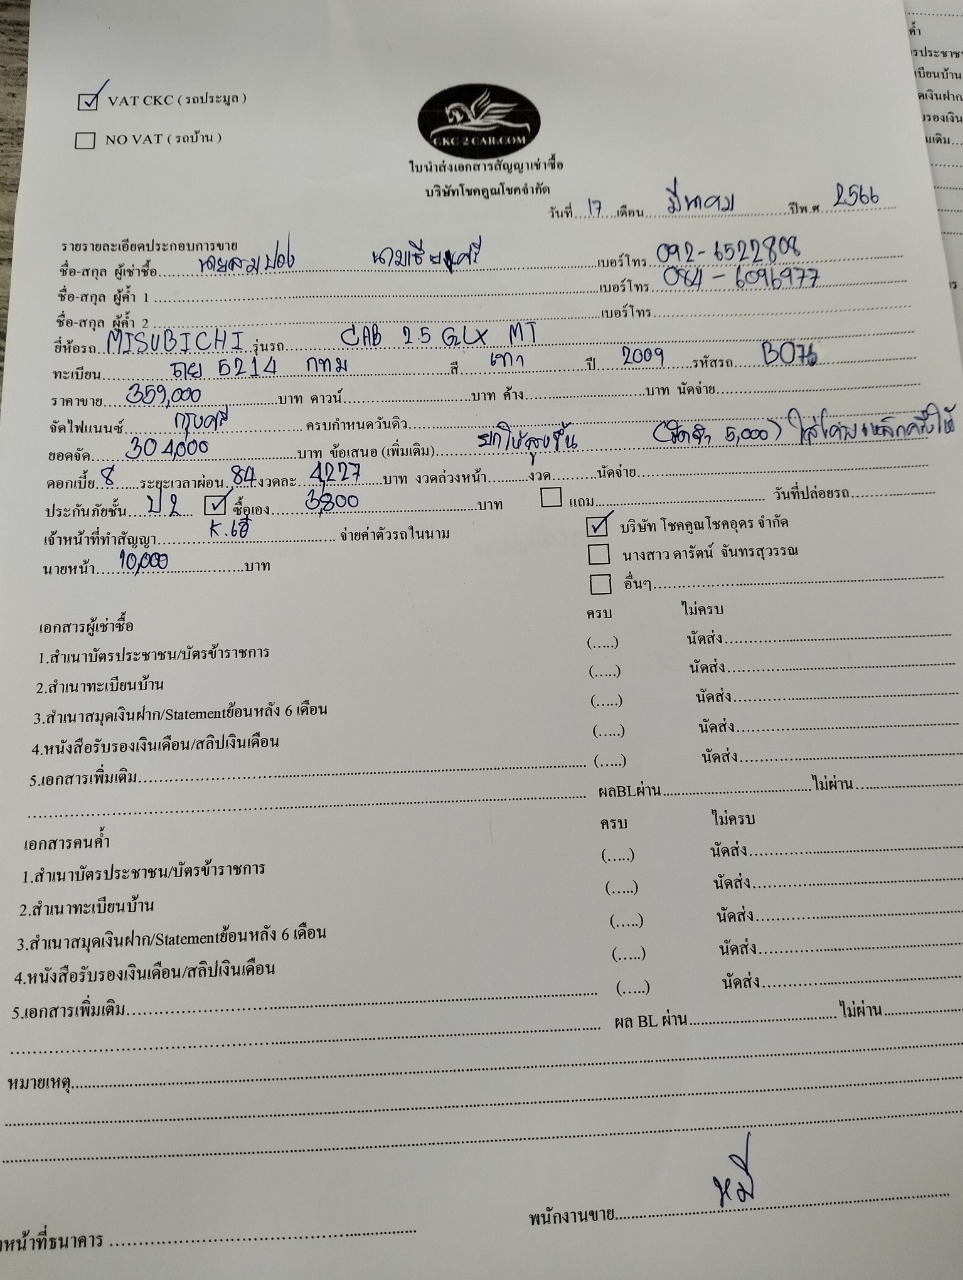 VAT CKC ( รถประมูล )
NO VAT ( รถบ้าน )
CKC 2 CAR.COM
ใบนำส่งเอกสารสัญญาเช่าซื้อ
บริษัทโชคคูณโชคจำกัด
วันที่ 17 เดือน มีนาคม ปีพ.ศ. 2566
รายรายละเอียดประกอบการขาย
ชื่อ-สกุล ผู้เช่าซื้อ นายสมปอง เบอร์โทร 092-6522808
ชื่อ-สกุล ผู้ค้ำ 1 เบอร์โทร 084-6096977
ชื่อ-สกุล ผู้ค้ำ 2 เบอร์โทร
ยี่ห้อรถ MISUBICHI รุ่นรถ CAB 2.5 GLX MT
ทะเบียน 5214 กทม สี เทา ปี 2009 รหัสรถ BO76
ราคาขาย 359,000 บาท ดาวน์ บาท ค้าง บาท นัดจ่าย
จัดไฟแนนซ์ กรุงศรี ครบกำหนดวันดิว
ยอดจัด 304,000 บาท ข้อเสนอ (เพิ่มเติม) ยกให้สูงขึ้น 5,000) ให้
ดอกเบี้ย 8 ระยะเวลาผ่อน 84 งวดละ 4,227 บาท งวดล่วงหน้า งวด นัดจ่าย
ประกันภัยชั้น ป 2 ซื้อเอง 3,800 บาท แถม วันที่ปล่อยรถ
เจ้าหน้าที่ทำสัญญา จ่ายค่าตัวรถในนาม บริษัท โชคคูณโชคอุดร จำกัด
นางสาว ดารัตน์ จันทรสุวรรณ
นายหน้า 10,000 บาท อื่นๆ
เอกสารผู้เช่าซื้อ ครบ ไม่ครบ
1.สำเนาบัตรประชาชน/บัตรข้าราชการ (.....) นัดส่ง
2.สำเนาทะเบียนบ้าน (.....) นัดส่ง
3.สำเนาสมุดเงินฝาก/Statementย้อนหลัง 6 เดือน (.....) นัดส่ง
4.หนังสือรับรองเงินเดือน/สลิปเงินเดือน (.....) นัดส่ง
5.เอกสารเพิ่มเติม (.....) นัดส่ง
ผลBLผ่าน ไม่ผ่าน
เอกสารคนค้ำ ครบ ไม่ครบ
1.สำเนาบัตรประชาชน/บัตรข้าราชการ (.....) นัดส่ง
2.สำเนาทะเบียนบ้าน (.....) นัดส่ง
3.สำเนาสมุดเงินฝาก/Statementย้อนหลัง 6 เดือน (.....) นัดส่ง
4.หนังสือรับรองเงินเดือน/สลิปเงินเดือน (.....) นัดส่ง
5.เอกสารเพิ่มเติม (.....) นัดส่ง
ผล BL ผ่าน ไม่ผ่าน
หมายเหตุ
พนักงานขาย หมี
หน้าที่ธนาคาร